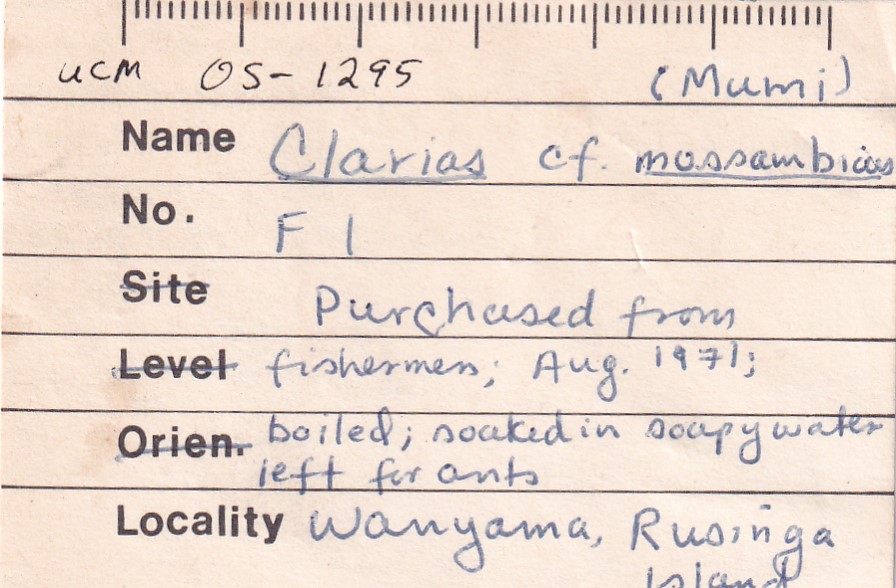 UCM OS-1295 (Mumi)
Name Clarias cf. mossambicus
No. F 1
Site Purchased from
Level fishermen; Aug. 1971;
Orien. boiled; soaked in soapy water
left for ants
Locality Wanyama, Rusinga
Island